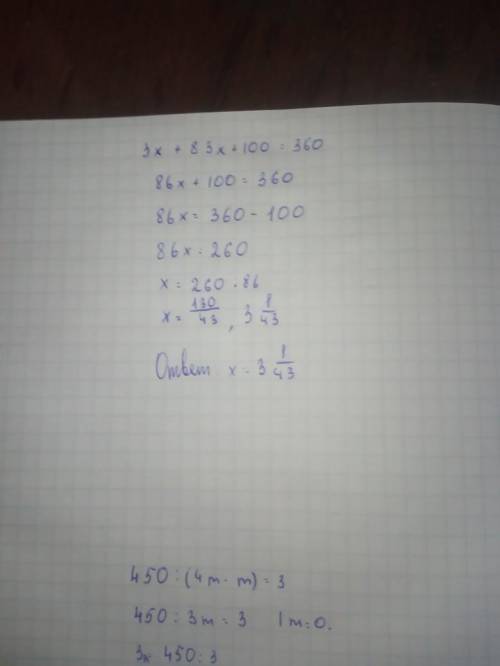 3x + 83x + 100 = 360
86x + 100 = 360
86x = 360 - 100
86x = 260
x = 260 : 86
x = 130/43, 3 1/43
Ответ: x = 3 1/43
450 : (4m - m) = 3
450 : 3m = 3 1m=0.
3x 450 : 3